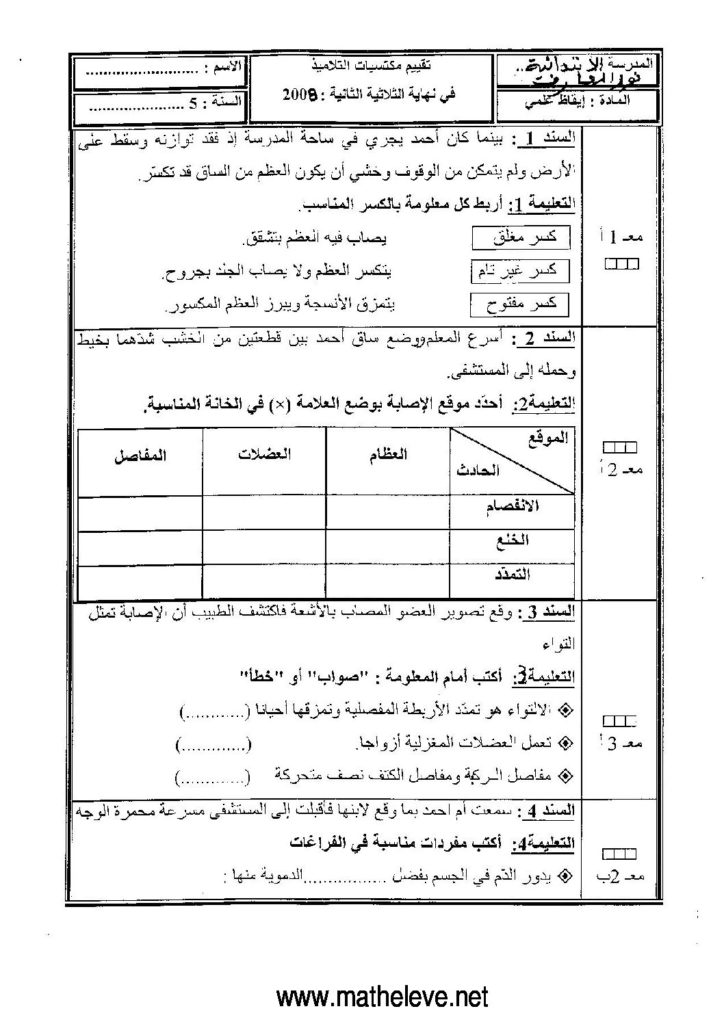 المدرسة الابتدائية ..
نور المعارف
المادة : إيقاظ علمي
تقييم مكتسبات التلاميذ
في نهاية الثلاثية الثانية : 2008
الاسم : ..........................
السنة : 5 ......................
السند 1 : بينما كان أحمد يجري في ساحة المدرسة إذ فقد توازنه وسقط على
الأرض ولم يتمكن من الوقوف وخشي أن يكون العظم من الساق قد تكسّر.
التعليمة 1: أربط كل معلومة بالكسر المناسب.
معـ 1 أ
كسر مغلق يصاب فيه العظم بتشقق.
كسر غير تام ينكسر العظم ولا يصاب الجلد بجروح.
كسر مفتوح يتمزق الأنسجة ويبرز العظم المكسور.
السند 2 : أسرع المعلم ووضع ساق أحمد بين قطعتين من الخشب شدّهما بخيط
وحمله إلى المستشفى.
التعليمة2: أحدّد موقع الإصابة بوضع العلامة (×) في الخانة المناسبة.
معـ 2 أ
الموقع
الحادث
العظام العضلات المفاصل
الانفصام
الخلع
التمدّد
السند 3 : وقع تصوير العضو المصاب بالأشعة فاكتشف الطبيب أن الإصابة تمثل
التواء
التعليمة3: أكتب أمام المعلومة : "صواب" أو "خطأ"
معـ 3 أ
الالتواء هو تمدّد الأربطة المفصلية وتمزقها أحيانا (............)
تعمل العضلات المغزلية أزواجا. (.............)
مفاصل الركبة ومفاصل الكتف نصف متحركة (.............)
السند 4 : سمعت أم احمد بما وقع لابنها فأقبلت إلى المستشفى مسرعة محمرة الوجه
التعليمة4: أكتب مفردات مناسبة في الفراغات
معـ 2ب
يدور الدّم في الجسم بفضل ................الدموية منها :
www.matheleve.net